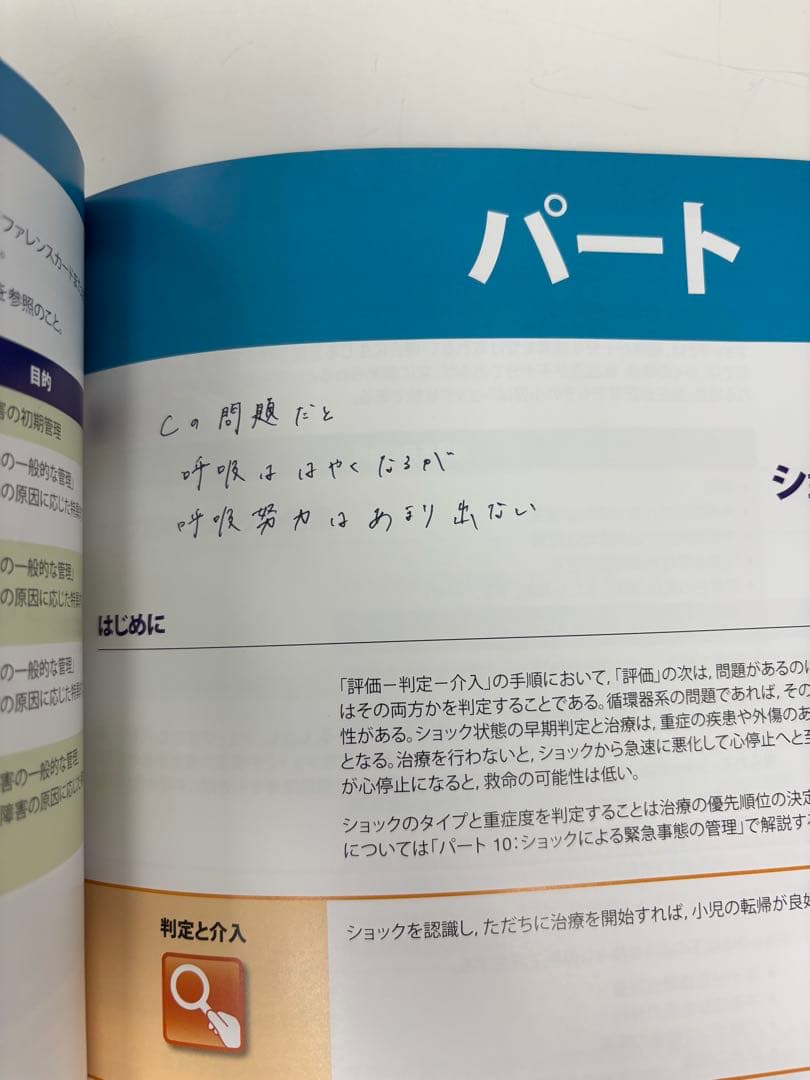 ファレンスカードまた
を参照のこと。
目的
害の初期管理
の一般的な管理」
の原因に応じた特異
の一般的な管理」
の原因に応じた特異
の一般的な管理」
の原因に応じた特異
害の一般的な管理
障害の原因に応じた
パート
Cの問題だと
呼吸は はやくなるが
呼吸努力はあまり出ない
ショ
はじめに
「評価－判定－介入」の手順において,「評価」の次は, 問題があるのに
はその両方かを判定することである。循環器系の問題であれば, その
性がある。ショック状態の早期判定と治療は, 重症の疾患や外傷のあ
となる。治療を行わないと, ショックから急速に悪化して心停止へと至
が心停止になると, 救命の可能性は低い。
ショックのタイプと重症度を判定することは治療の優先順位の決定
については「パート 10：ショックによる緊急事態の管理」で解説す
判定と介入
ショックを認識し, ただちに治療を開始すれば, 小児の転帰が良好